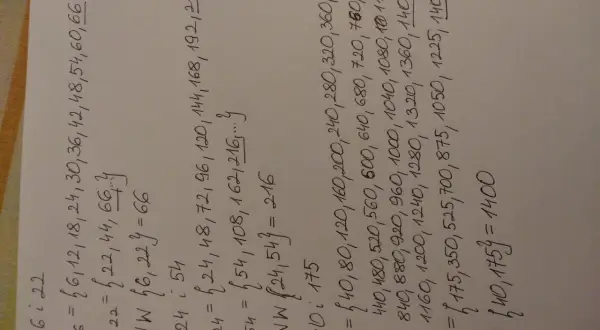 6 i 22
6 = {6, 12, 18, 24, 30, 36, 42, 48, 54, 60, 66
22 = {22, 44, 66,...}
NW {6, 22} = 66
24 i 54
24 = {24, 48, 72, 96, 120, 144, 168, 192, 2
54 = {54, 108, 162, 216,...}
NW {24, 54} = 216
40 i 175
= {40, 80, 120, 160, 200, 240, 280, 320, 360,
440, 480, 520, 560, 600, 640, 680, 720, 760,
840, 880, 920, 960, 1000, 1040, 1080,
1160, 1200, 1240, 1280, 1320, 1360, 140
= {175, 350, 525, 700, 875, 1050, 1225, 140
{40, 175} = 1400